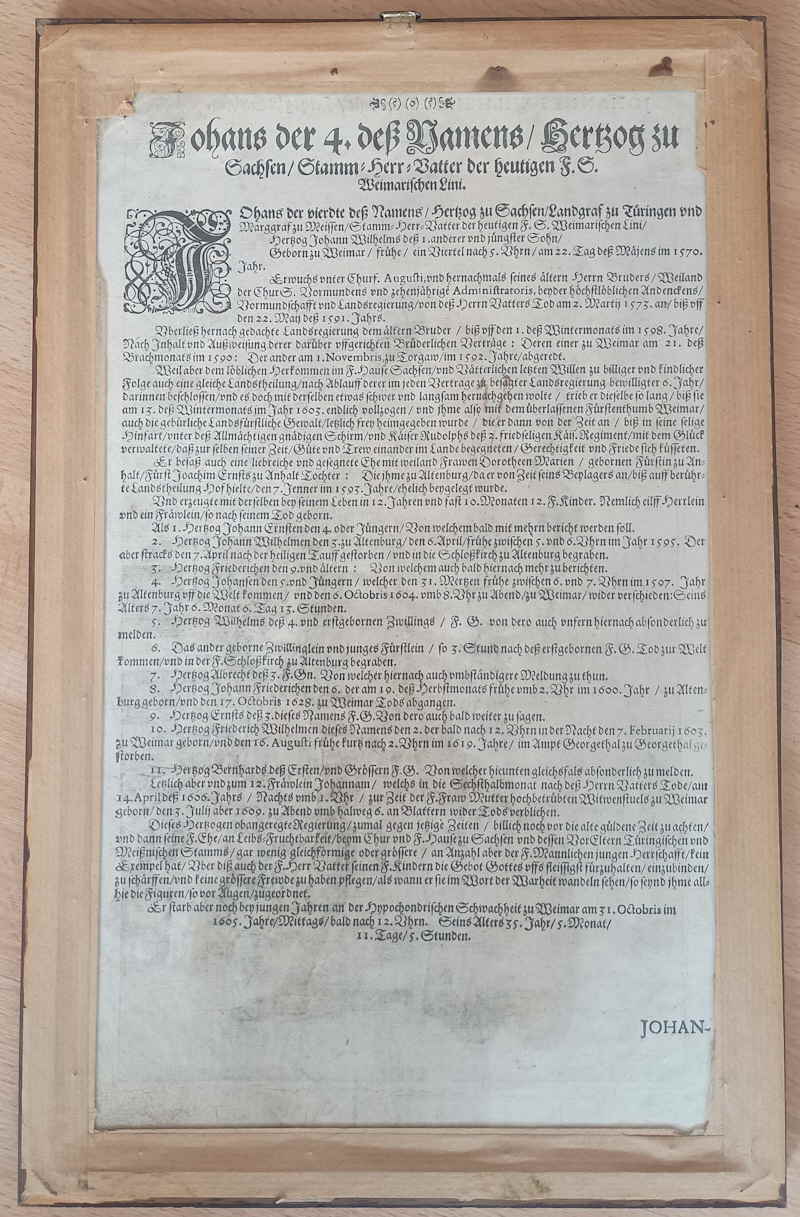 (ɛ) (o) (ɛ)
Johans der 4. deß Namens/ Hertzog zu
Sachsen/ Stamm-Herr-Vatter der heutigen F. S.
Weimarischen Lini.
JOhans der vierdte deß Namens/ Hertzog zu Sachsen/Landgraf zu Türingen vnd
Marggraf zu Meissen/Stamm-Herr-Vatter der heutigen F. S. Weimarischen Lini/
Hertzog Johann Wilhelms deß 1. anderer vnd jüngster Sohn/
Geborn zu Weimar / frühe / ein Viertel nach 5. Vhrn/am 22. Tag deß Mäjens im 1570.
Jahr.
Erwuchs vnter Churf. Augusti, vnd hernachmals seines ältern Herrn Bruders/ Weiland
der ChurS. Vormundens vnd zehenjährigē Administratoris, beyder höchstlöblichen Andenckens/
Vormundschafft vnd Landsregierung/von deß Herrn Vatters Tod am 2. Martij 1573. an/ biß vff
den 22. May deß 1591. Jahrs.
Vberließ hernach gedachte Landsregierung dem ältern Bruder / biß vff den 1. deß Wintermonats im 1598. Jahre/
Nach Inhalt vnd Außweisung derer darüber vffgerichten Brüderlichen Verträge : Deren einer zu Weimar am 21. deß
Brachmonats im 1590: Der ander am 1. Novembris, zu Torgaw/im 1592. Jahre/abgeredt.
Weil aber dem löblichen Herkommen im F. Hause Sachsen/vnd Vätterlichen letzten Willen zu billiger vnd kindlicher
Folge auch eine gleiche Landstheilung/nach Ablauff derer im jeden Vertrage zu besagter Landsregierung bewilligter 6. Jahr/
darinnen beschlossen/vnd es doch mit derselben etwas schwer vnd langsam hernachgehen wolte / trieb er dieselbe so lang / biß sie
am 13. deß Wintermonats im Jahr 1603. endlich vollzogen / vnd jhme also mit dem überlassenen Fürstenthumb Weimar/
auch die gebürliche Landsfürstliche Gewalt/letzlich frey heimgegeben wurde / die er dann von der Zeit an / biß in seine selige
Hinfart/vnter deß Allmächtigen gnädigen Schirm/vnd Käiser Rudolphs deß 2. friedseligen Käis. Regiment/mit dem Glück
verwaltete/daß zur selben seiner Zeit/Güte vnd Trew einander im Lande begegneten/ Gerechtigkeit vnd Friede sich küsseten.
Er besaß auch eine liebreiche vnd gesegnete Ehe mit weiland Frawen Dorotheen Marien / gebornen Fürstin zu An-
halt/Fürst Joachim Ernsts zu Anhalt Tochter : Die jhme zu Altenburg/da er von Zeit seines Beylagers an/biß auff berühr-
te Landstheilung Hof hielte/den 7. Jenner im 1593. Jahre/ehelich beygelegt wurde.
Vnd erzeugte mit derselben bey seinem Leben in 12. Jahren vnd fast 10. Monaten 12. F. Kinder. Nemlich eilff Herrlein
vnd ein Fräwlein/so nach seinem Tod geborn.
Als 1. Hertzog Johann Ernsten den 4. oder Jüngern/ Von welchem bald mit mehrn bericht werden soll.
2. Hertzog Johann Wilhelmen den 3. zu Altenburg/ den 6. April/frühe zwischen 5. vnd 6. Vhrn im Jahr 1595. Der
aber stracks den 7. April nach der heiligen Tauff gestorben / vnd in die Schloßkirch zu Altenburg begraben.
3. Hertzog Friederichen den 9. vnd ältern : Von welchem auch bald hiernach mehr zu berichten.
4. Hertzog Johansen den 5. vnd Jüngern / welcher den 31. Mertzen frühe zwischen 6. vnd 7. Vhrn im 1597. Jahr
zu Altenburg vff die Welt kommen/ vnd den 6. Octobris 1604. vmb 8. Vhr zu Abend/zu Weimar/ wider verschieden: Seins
Alters 7. Jahr 6. Monat 6. Tag 13. Stunden.
5. Hertzog Wilhelms deß 4. vnd erstgebornen Zwillings / F. G. von dero auch vnfern hiernach absonderlich zu
melden.
6. Das ander geborne Zwillinglein vnd junges Fürstlein / so 3. Stund nach deß erstgebornen F. G. Tod zur Welt
kommen/vnd in der F. Schloßkirch zu Altenburg begraben.
7. Hertzog Albrecht deß 3. F. Gn. Von welcher hiernach auch vmbständigere Meldung zu thun.
8. Hertzog Johann Friederichen den 6. der am 19. deß Herbstmonats frühe vmb 2. Vhr im 1600. Jahr / zu Alten-
burg geborn/vnd den 17. Octobris 1628. zu Weimar Tods abgangen.
9. Hertzog Ernsts deß 3. dieses Namens F. G. Von dero auch bald weiter zu sagen.
10. Hertzog Friederich Wilhelmen dieses Namens den 2. der bald nach 12. Vhrn in der Nacht den 7. Februarij 1603.
zu Weimar geborn/vnd den 16. Augusti frühe kurtz nach 2. Vhrn im 1619. Jahre/ im Ampt Georgethal zu Georgethal ge-
storben.
11. Hertzog Bernhards deß Ersten/vnd Grössern F. G. Von welcher hieunten gleichsfals absonderlich zu melden.
Letzlich aber vnd zum 12. Fräwlein Johannam/ welchs in die Sechsthalbmonat nach deß Herrn Vatters Tode/am
14. April deß 1606. Jahrs / Nachts vmb 1. Vhr / zur Zeit der F. Fraw Mutter hochbetrübten Witwenstuels zu Weimar
geborn/den 3. Julij aber 1609. zu Abend vmb halweg 6. an Blattern wider Tods verblichen.
Dieses Hertzogen obangeregte Regierung/zumal gegen jetzige Zeiten / billich noch vor die alte güldene Zeit zu achten/
vnd dann seine F. Ehe/an Leibs-Fruchtbarkeit/beym Chur vnd F. Hause zu Sachsen vnd dessen VorEltern Türingischen vnd
Meißnischen Stamms/gar wenig gleichförmige oder grössere / an Anzahl aber der F. Mannlichen jungen Herrschafft/kein
Exempel hat/ Vber diß auch der F. Herr Vatter seinen F. Kindern die Gebot Gottes vffs fleissigst fürzuhalten/einzubinden/
zu schärffen/vnd keine grössere Frewde zu haben pflegen/als wann er sie im Wort der Warheit wandeln sehen/so seynd jhme all-
hie die Figuren/so vor Augen/zugeordnet.
Er starb aber noch bey jungen Jahren an der Hypochondrischen Schwachheit zu Weimar am 31. Octobris im
1605. Jahre/Mittags/bald nach 12. Vhrn. Seins Alters 35. Jahr/5. Monat/
11. Tage/5. Stunden.
JOHAN-